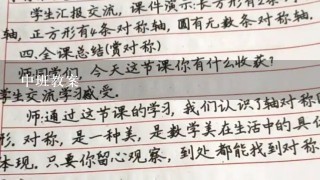 学生汇报交流，课件演示：长方形有2条
轴，正方形有4条对称轴，圆有无数条对称轴.
四.全课总结(赏对称)
今天这节课你有什么收获？
中班教案
学生交流学习感受.
师:通过这节课的学习，我们认识了轴对称图
形.对称，是一种美，是数学美在生活中的具体
体现.只要你留心观察，到处都能找到对称